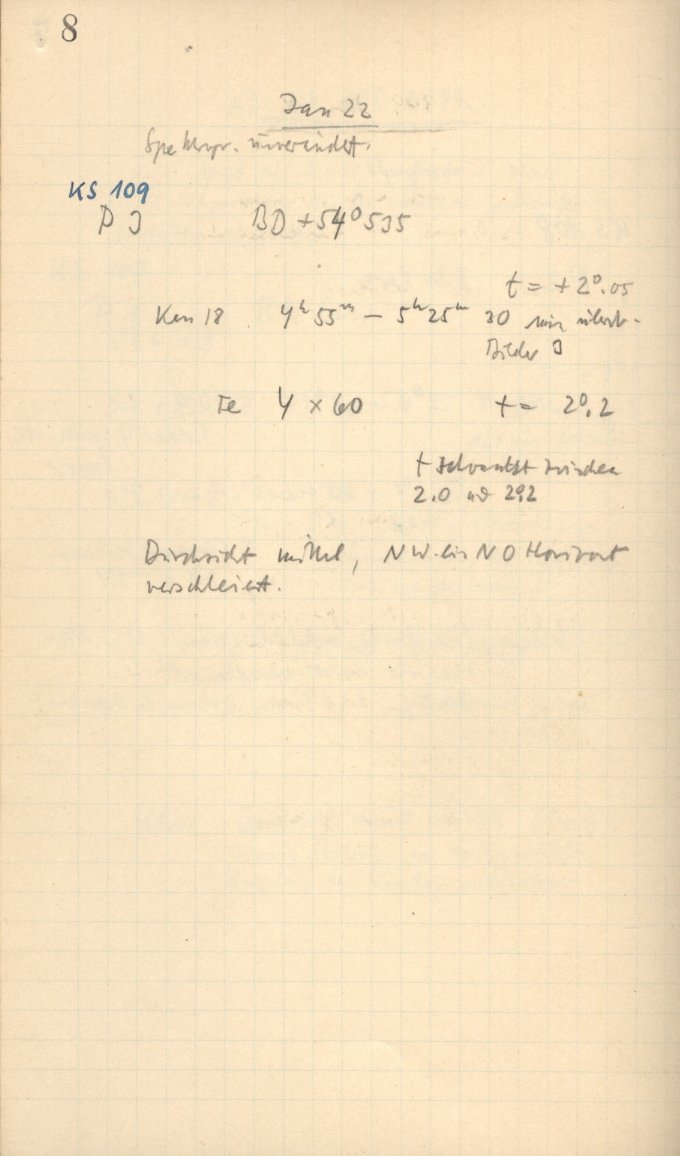 8
Jan 22
Spektrgr. unverändert.
KS 109
P 3 BD +54° 535
t = +2°.05
Kas 18 4h 55m – 5h 25m 30 min
Bilder 3
Fe 4 × 60 t = 2°.2
t schwankt zwischen
2.0 und 2°.2
Durchsicht mittel, NW bis NO Horizont
verschleiert.